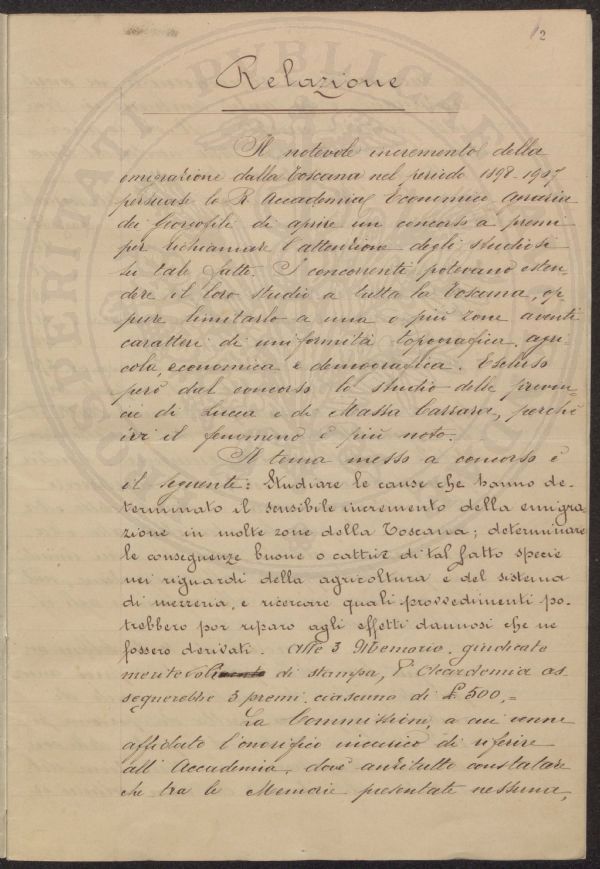 2
Relazione
Il notevole incremento della
emigrazione dalla Toscana nel periodo 1898-1907
persuase la R. Accademia Economico Agraria
dei Georgofili di aprire un concorso a premi
per richiamare l'attenzione degli studiosi
su tale fatto. I concorrenti potevano esten
dere il loro studio a tutta la Toscana, op
pure limitarlo a una o più zone aventi
caratteri di uniformità topografica, agri
cola, economica e demografica. Escluso
però dal concorso lo studio delle provin
cie di Lucca e di Massa Carrara, perchè
ivi il fenomeno è più noto.
Il tema messo a concorso è
il seguente: Studiare le cause che hanno de-
terminato il sensibile incremento della emigra
zione in molte zone della Toscana; determinare
le conseguenze buone o cattive di tal fatto specie
nei riguardi della agricoltura e del sistema
di mezzeria, e ricercare quali provvedimenti po-
trebbero por riparo agli effetti dannosi che ne
fossero derivati. Alle 3 Memorie, giudicate
meritevoli di stampa, l'Accademia as
segnerebbe 3 premi, ciascuno di £ 500,=
La Commissione, a cui venne
affidato l'onorifico incarico di riferire
all'Accademia, dové anzitutto constatare
che tra le Memorie presentate nessuna,
PROSPERITATI PUBLICAE